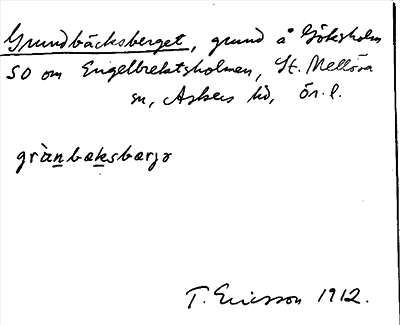 Grundbäcksberget, grund å Göksholm
SO om Engelbrektsholmen, St. Mellösa
sn, Askers hd, Ör. l.
grànbæksbærjə
T. Ericsson 1912.